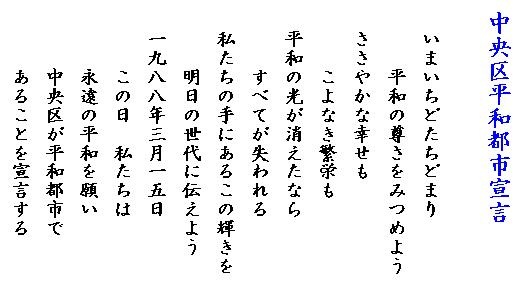 中央区平和都市宣言
いまいちどたちどまり
平和の尊さをみつめよう
ささやかな幸せも
こよなき繁栄も
平和の光が消えたなら
すべてが失われる
私たちの手にあるこの輝きを
明日の世代に伝えよう
一九八八年三月一五日
この日　私たちは
永遠の平和を願い
中央区が平和都市で
あることを宣言する